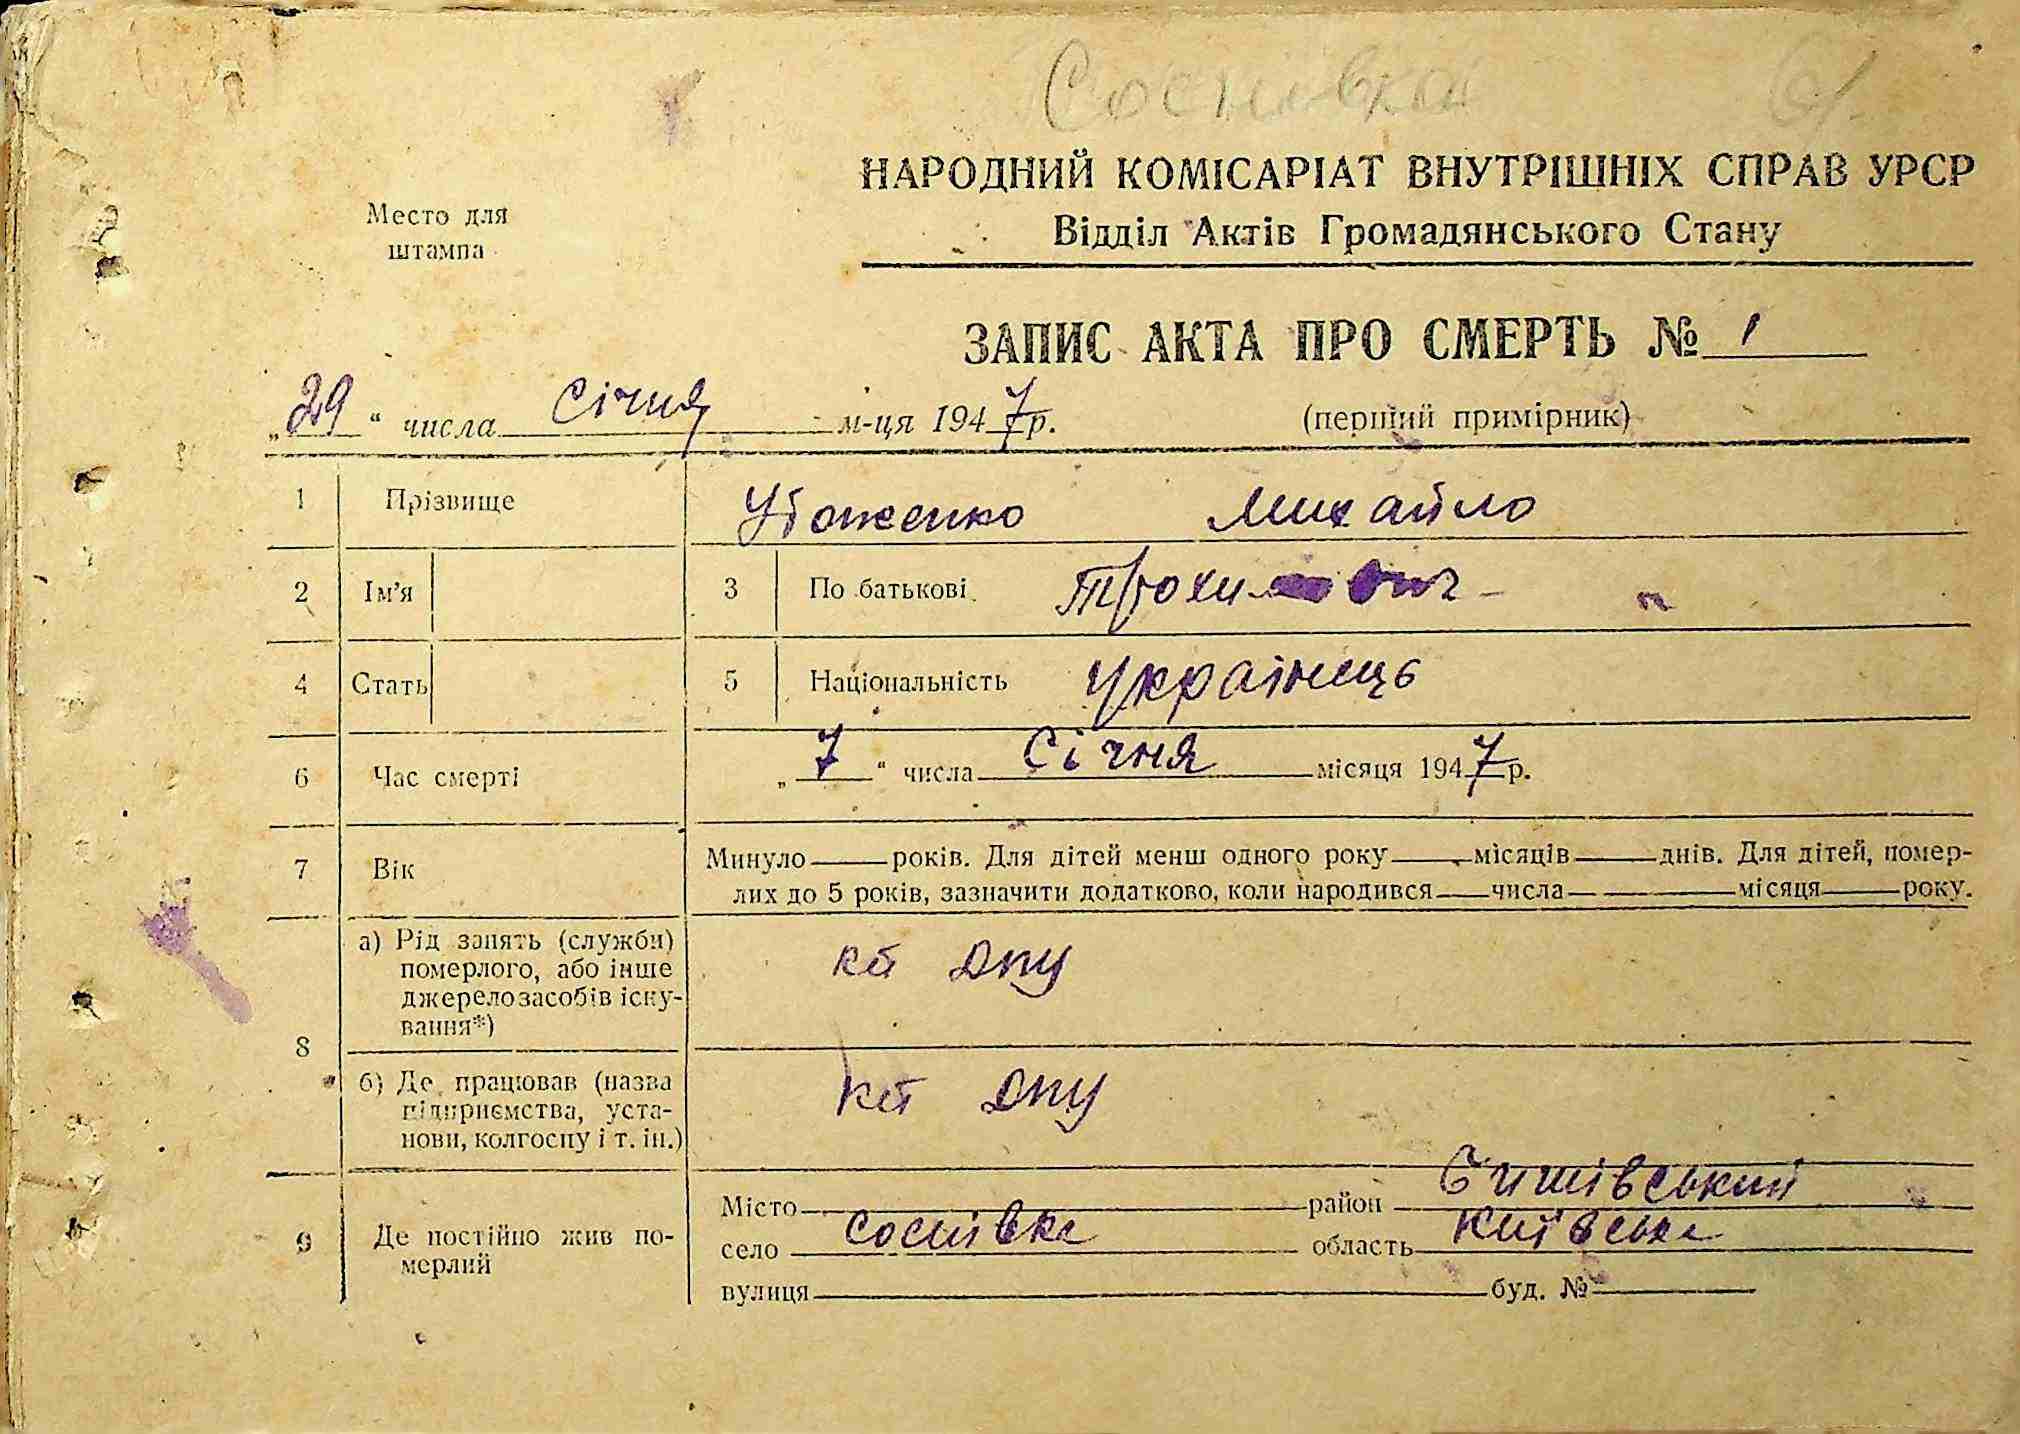 Соснівка
НАРОДНИЙ КОМІСАРІАТ ВНУТРІШНІХ СПРАВ УРСР
Место для
штампа
Відділ Актів Громадянського Стану
ЗАПИС АКТА ПРО СМЕРТЬ № 1
„29“ числа Січня м-ця 1947р. (перший примірник)
1 Прізвище Убоженко Михайло
2 Ім'я 3 По батькові Трохимович
4 Стать 5 Національність українець
6 Час смерті „7“ числа Січня місяця 1947р.
7 Вік Минуло ___ років. Для дітей менш одного року ___ місяців ___ днів. Для дітей, помер-
лих до 5 років, зазначити додатково, коли народився ___ числа ___ місяця ___ року.
8 а) Рід занять (служби)
померлого, або інше
джерело засобів існу-
вання*) кг дпу
б) Де працював (назва
підприємства, уста-
нови, колгоспу і т. ін.) кг дпу
9 Де постійно жив по-
мерлий
Місто ___ район
село соснівка область Київська
вулиця ___ буд. №